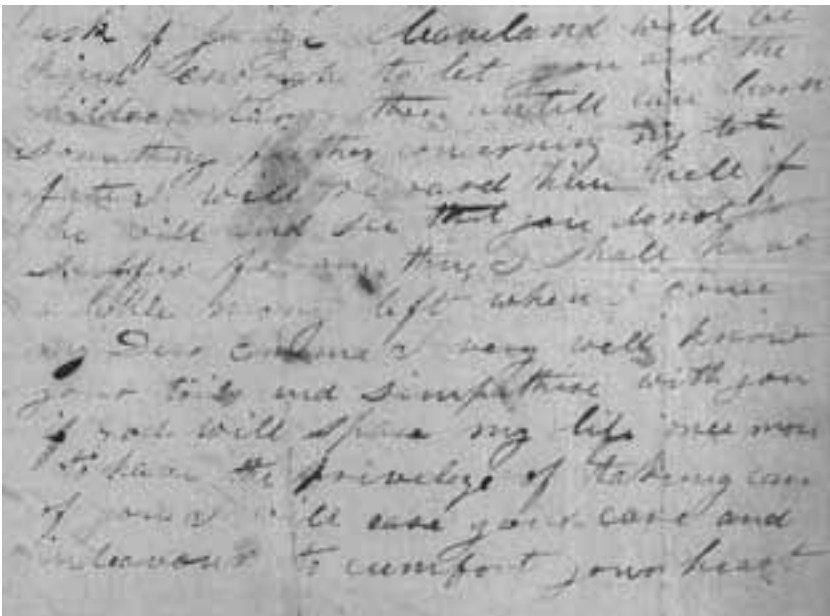 ask if Judge Cleaveland will be
kind enough to let you and the
children tarry there untill you hear
something further concerning my
fate I will reward him well if
he will and see that you donot
suffer for any thing I shall have
a little money left when I come
my Dear I very well know
your toils and simpathise with you
if god will spare my life once more
to have the privelige of taking care
of you I will ease your care and
indeavour to cumfort your heart